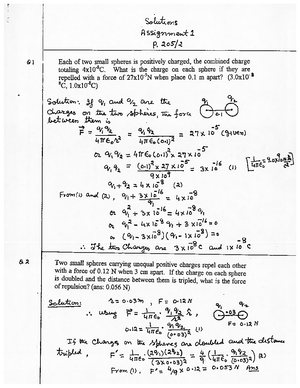 Solutions
Assignment 1
P. 205/2
Q1
Each of two small spheres is positively charged, the combined charge
totaling 4x10⁻⁸C. What is the charge on each sphere if they are
repelled with a force of 27x10⁻⁵N when place 0.1 m apart? (3.0x10⁻⁸
C, 1.0x10⁻⁸C)
Solution:- If q₁ and q₂ are the
charges on the two spheres, the force
between them is
q₁ q₂
0.1
F = q₁q₂/4πε₀r² = q₁q₂/4πε₀(0.1)² = 27 x 10⁻⁵ (given)
or q₁q₂ = 4πε₀(0.1)² x 27x10⁻⁵
q₁q₂ = (0.1)² x 27x10⁻⁵/9x10⁹ = 3x10⁻¹⁶ (1)
q₁ + q₂ = 4x10⁻⁸ (2)
From (1) and (2), q₁ + 3x10⁻¹⁶/q₁ = 4x10⁻⁸
or q₁² + 3x10⁻¹⁶ = 4x10⁻⁸ q₁
or q₁² - 4x10⁻⁸ q₁ + 3x10⁻¹⁶ = 0
or (q₁ - 3x10⁻⁸)(q₁ - 1x10⁻⁸) = 0
∴ The two charges are 3x10⁻⁸C and 1x10⁻⁸C
Q.2
Two small spheres carrying unequal positive charges repel each other
with a force of 0.12 N when 3 cm apart. If the charge on each sphere
is doubled and the distance between them is tripled, what is the force
of repulsion? (ans: 0.056 N)
Solution: r = 0.03m, F = 0.12 N
∴ using F = 1/4πε₀ q₁q₂/r²,
0.12 = 1/4πε₀ q₁q₂/(0.03)² (1)
q₁ q₂
0.03
F = 0.12 N
If the charges on the spheres are doubled and the distance
tripled, F' = 1/4πε₀ (2q₁)(2q₂)/(3x0.03)² = 4/9 (1/4πε₀ q₁q₂/(0.03)²) (2)
From (1), F' = 4/9 x 0.12 = 0.053 N Ans